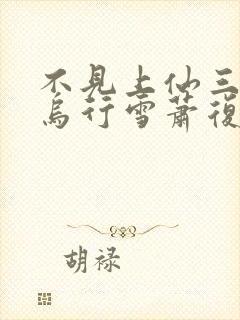 不見上仙三
烏行雪蕭復
胡禄